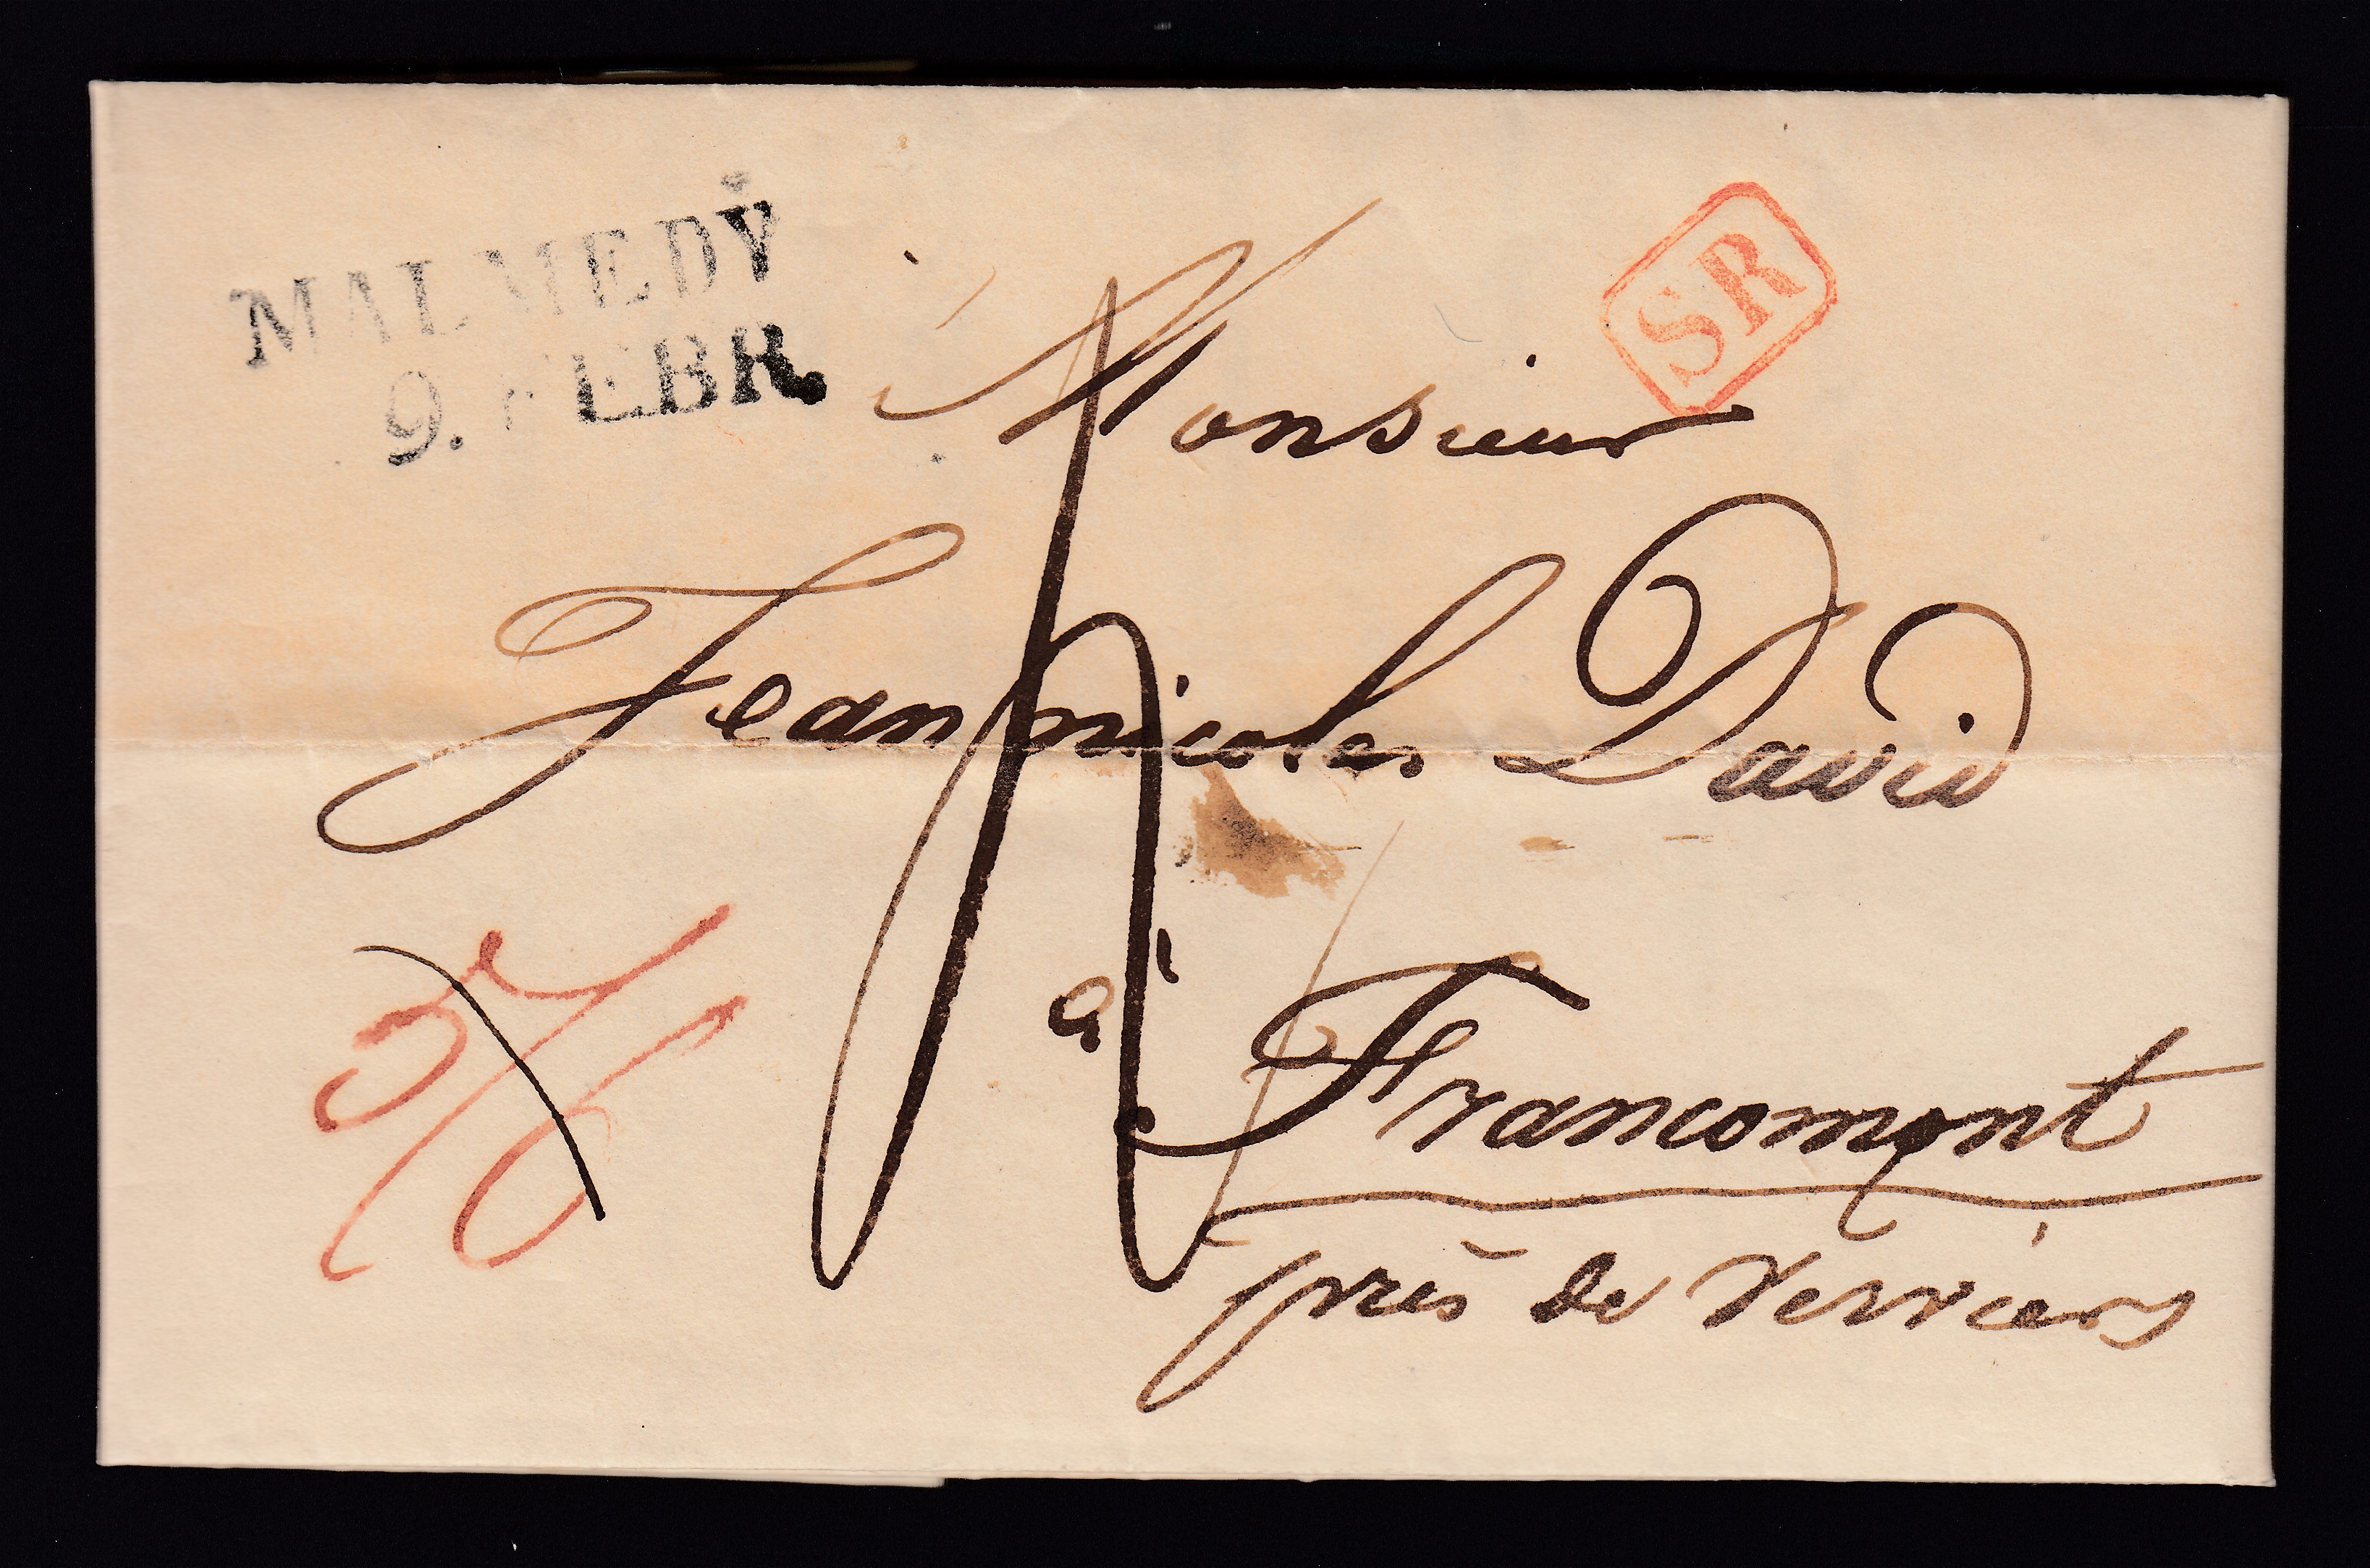 MALMEDY
9. FEBR.
SR
Monsieur
Jean nicolas David
à Francomont
près de Verviers